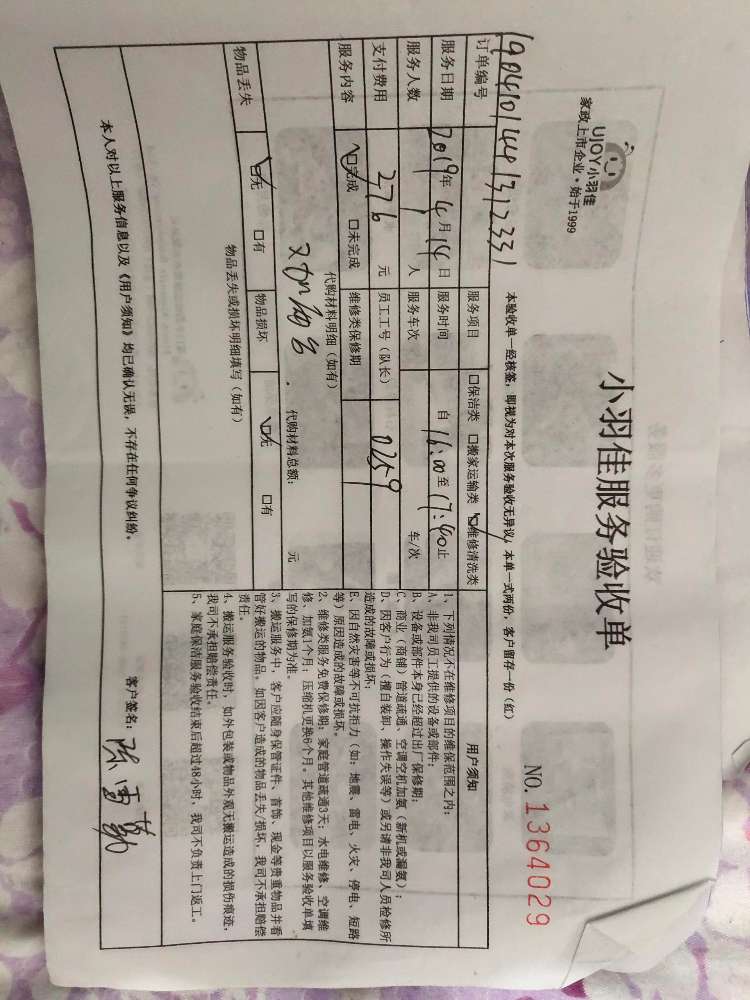 UJOY小羽佳
家政上市企业·始于1999
小羽佳服务验收单
NO.1364029
本验收单一经核签，即视为对本次服务验收无异议，本单一式两份，客户留存一份（红）
订单编号
服务项目 □保洁类 □搬家运输类 ☑维修清洗类
服务日期 2019年 4月 14日 服务时间 自 16:00 至 17:40 止
服务人数 1 人 服务车次 车/次
支付费用 276 元 员工工号（队长） 0259
服务内容 ☑完成 □未完成 维修类保修期
代购材料明细（如有）
代购材料总额： 元
物品丢失 ☑无 □有 物品损坏 ☑无 □有
物品丢失或损坏明细填写（如有）
用户须知
1、下列情况不在维修项目的维保范围之内：
A、非我司员工提供的设备或部件；
B、设备或部件本身已经超过出厂保修期；
C、商业（商铺）管道疏通、空调空机加氨（新机或漏氨）；
D、因客户行为（擅自装卸、操作失误等）或另请非我司人员检修所
造成的故障或损坏；
E、因自然灾害等不可抗拒力（如：地震、雷电、火灾、停电、短路
等）原因造成的故障或损坏。
2、维修类服务免费保修期：家庭管道疏通3天；水电维修、空调维
修、加氨1个月；压缩机更换6个月。其他维修项目以服务验收单填
写的保修期为准。
3、搬运服务中，客户应随身保管证件、首饰、现金等贵重物品并看
管好搬运的物品，如因客户造成的物品丢失/损坏，我司不承担赔偿
责任。
4、搬运服务验收时，如外包装或物品外观无搬运造成的损伤痕迹，
我司不承担赔偿责任。
5、家庭保洁服务验收结束后超过48小时，我司不负责上门返工。
本人对以上服务信息以及《用户须知》均已确认无误，不存在任何争议纠纷。
客户签名：